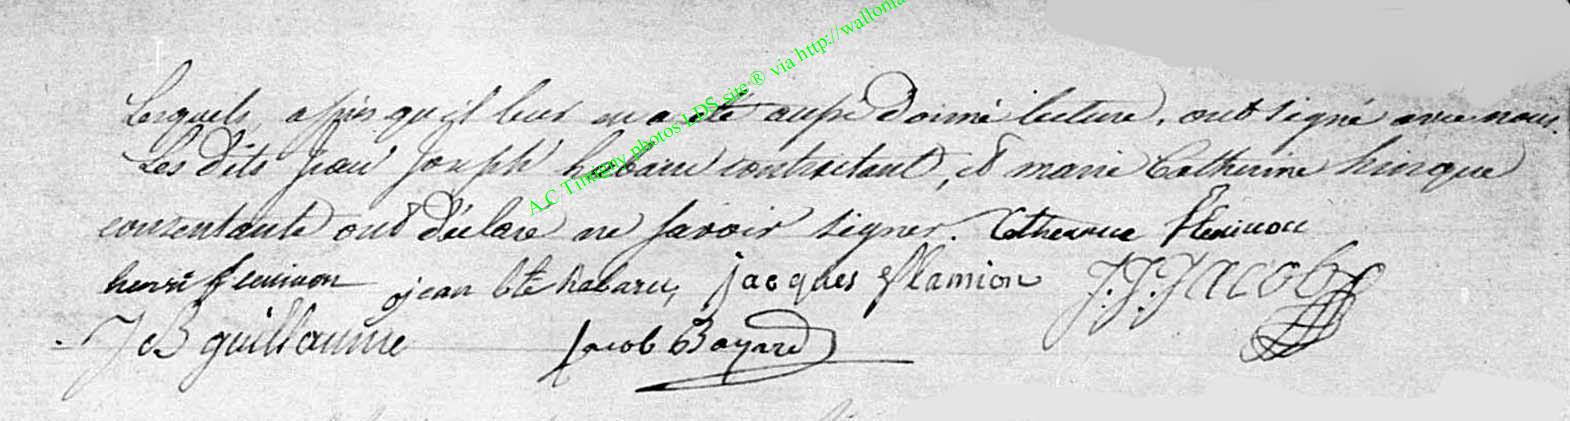 A.C Tintigny photos LDS site ® via http://wallonia
Lesquels, après qu'il leur en a été aussi donné lecture, ont signé avec nous.
Les dits jean joseph habaru contractant, et marie Catherine hinque
consentante ont déclaré ne savoir signer. Catherine
henri jean bte habaru, jacques flamion J.J. Jacob
J B guillaume Jacob Bayard